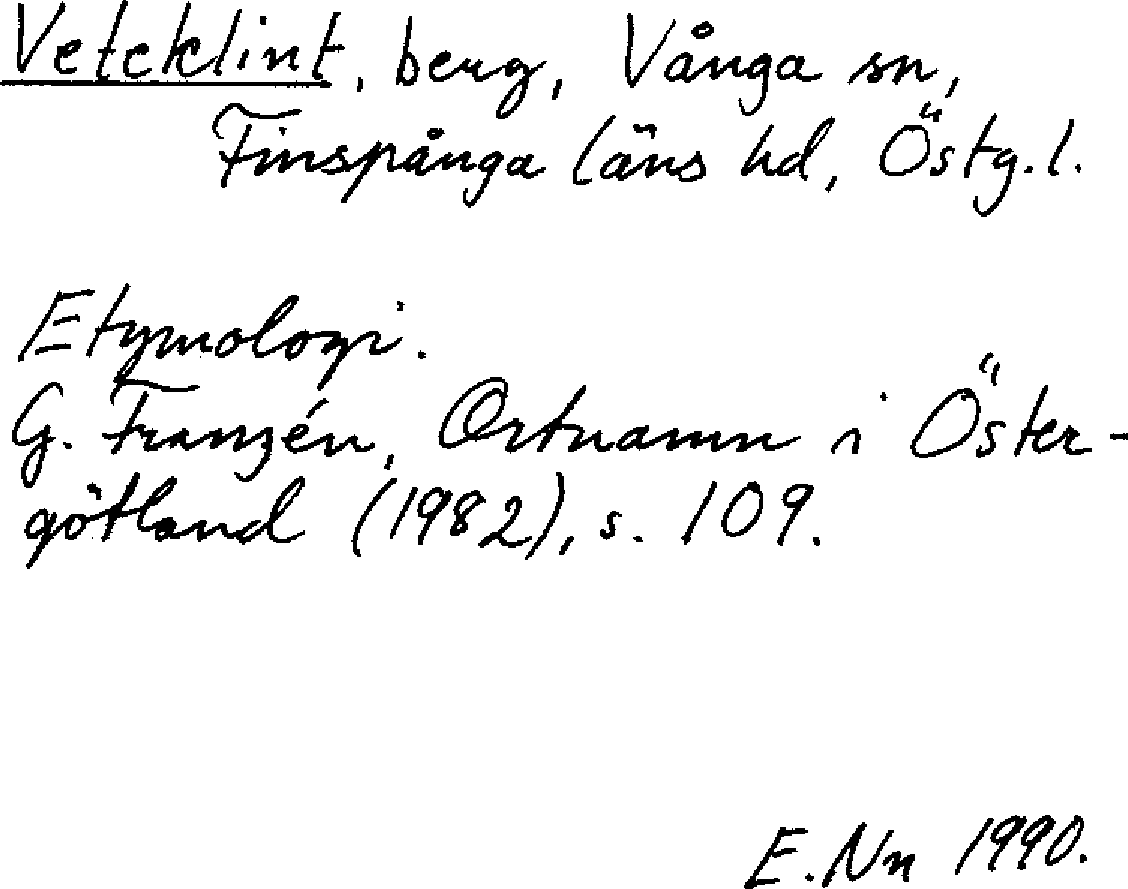 Veteklint, berg, Vånga sn,
Finspånga läns hd, Östg.l.
Etymologi.
G. Franzén, Ortnamn i Öster-
götland (1982), s. 109.
E.Nn 1990.